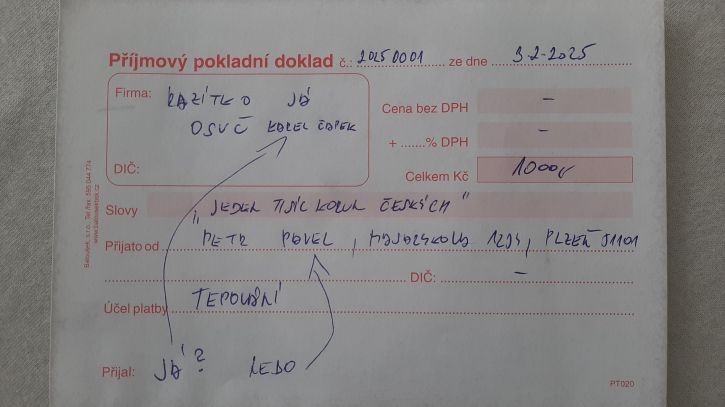 Příjmový pokladní doklad č.: 20250001 ze dne 3-2-2025
Firma: RAZÍTKO JÁ
OSVČ KAREL ČAPEK
Cena bez DPH –
+ .......% DPH –
DIČ:
Celkem Kč 1000,-
Slovy „JEDEN TISÍC KORUN ČESKÝCH"
Přijato od PETR PAVEL, 1234, PLZEŇ 31101
DIČ: –
Účel platby TEPOVÁNÍ
Přijal: JÁ? NEBO
PT020
Baloušek, s.r.o. Tel./fax: 595 044 774
www.balousektisk.cz